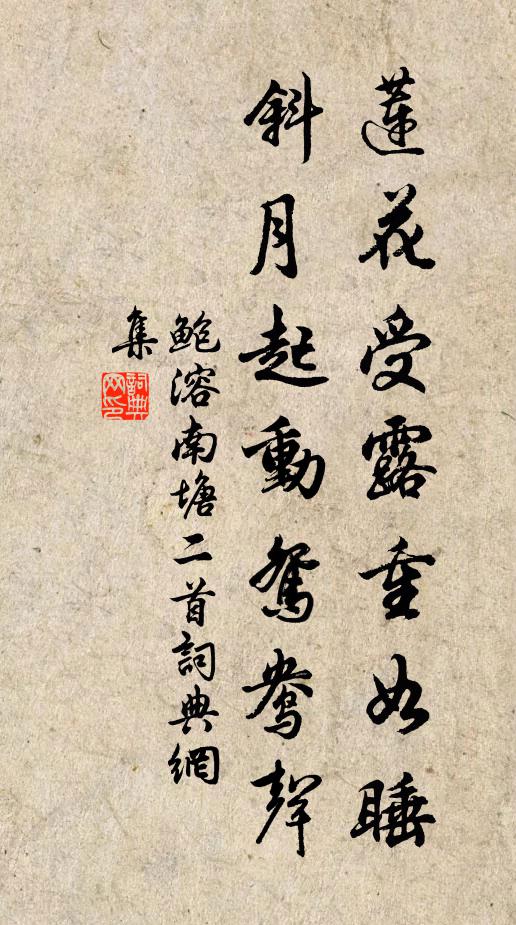 蓮花受露重如睡
斜月起動鴛鴦聲
鮑溶南塘二首詞典網
集
詞典網印